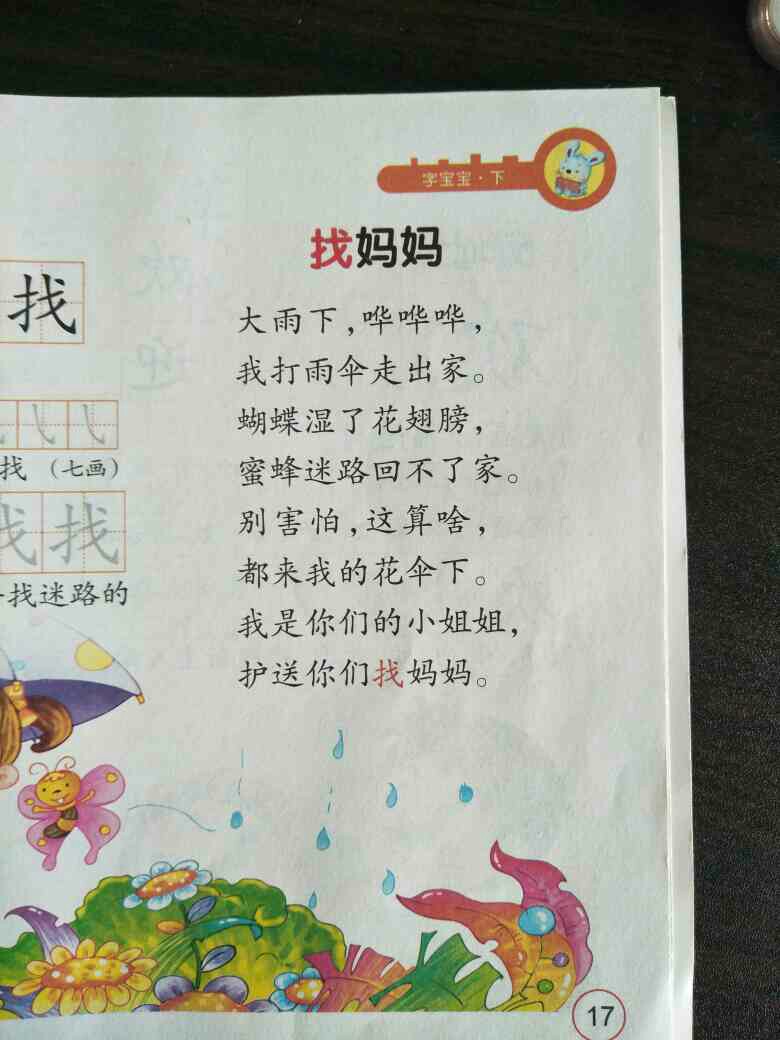 字宝宝·下
找妈妈
大雨下,哗哗哗,
我打雨伞走出家。
蝴蝶湿了花翅膀,
蜜蜂迷路回不了家。
别害怕,这算啥,
都来我的花伞下。
我是你们的小姐姐,
护送你们找妈妈。
找
找 (七画)
找找
找迷路的
17